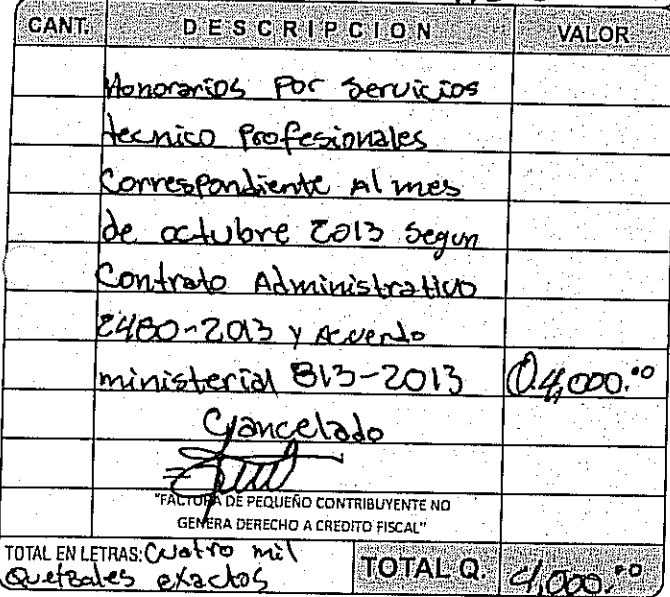 CANT. DESCRIPCION VALOR
Honorarios Por Servicios
tecnico Profesionales
Correspondiente Al mes
de octubre 2013 Segun
Contrato Administrativo
2480-2013 y Acuerdo
ministerial 813-2013 Q4,000.00
Cancelado
"FACTURA DE PEQUEÑO CONTRIBUYENTE NO
GENERA DERECHO A CREDITO FISCAL"
TOTAL EN LETRAS: Cuatro mil
Quetzales exactos TOTAL Q. 4,000.00